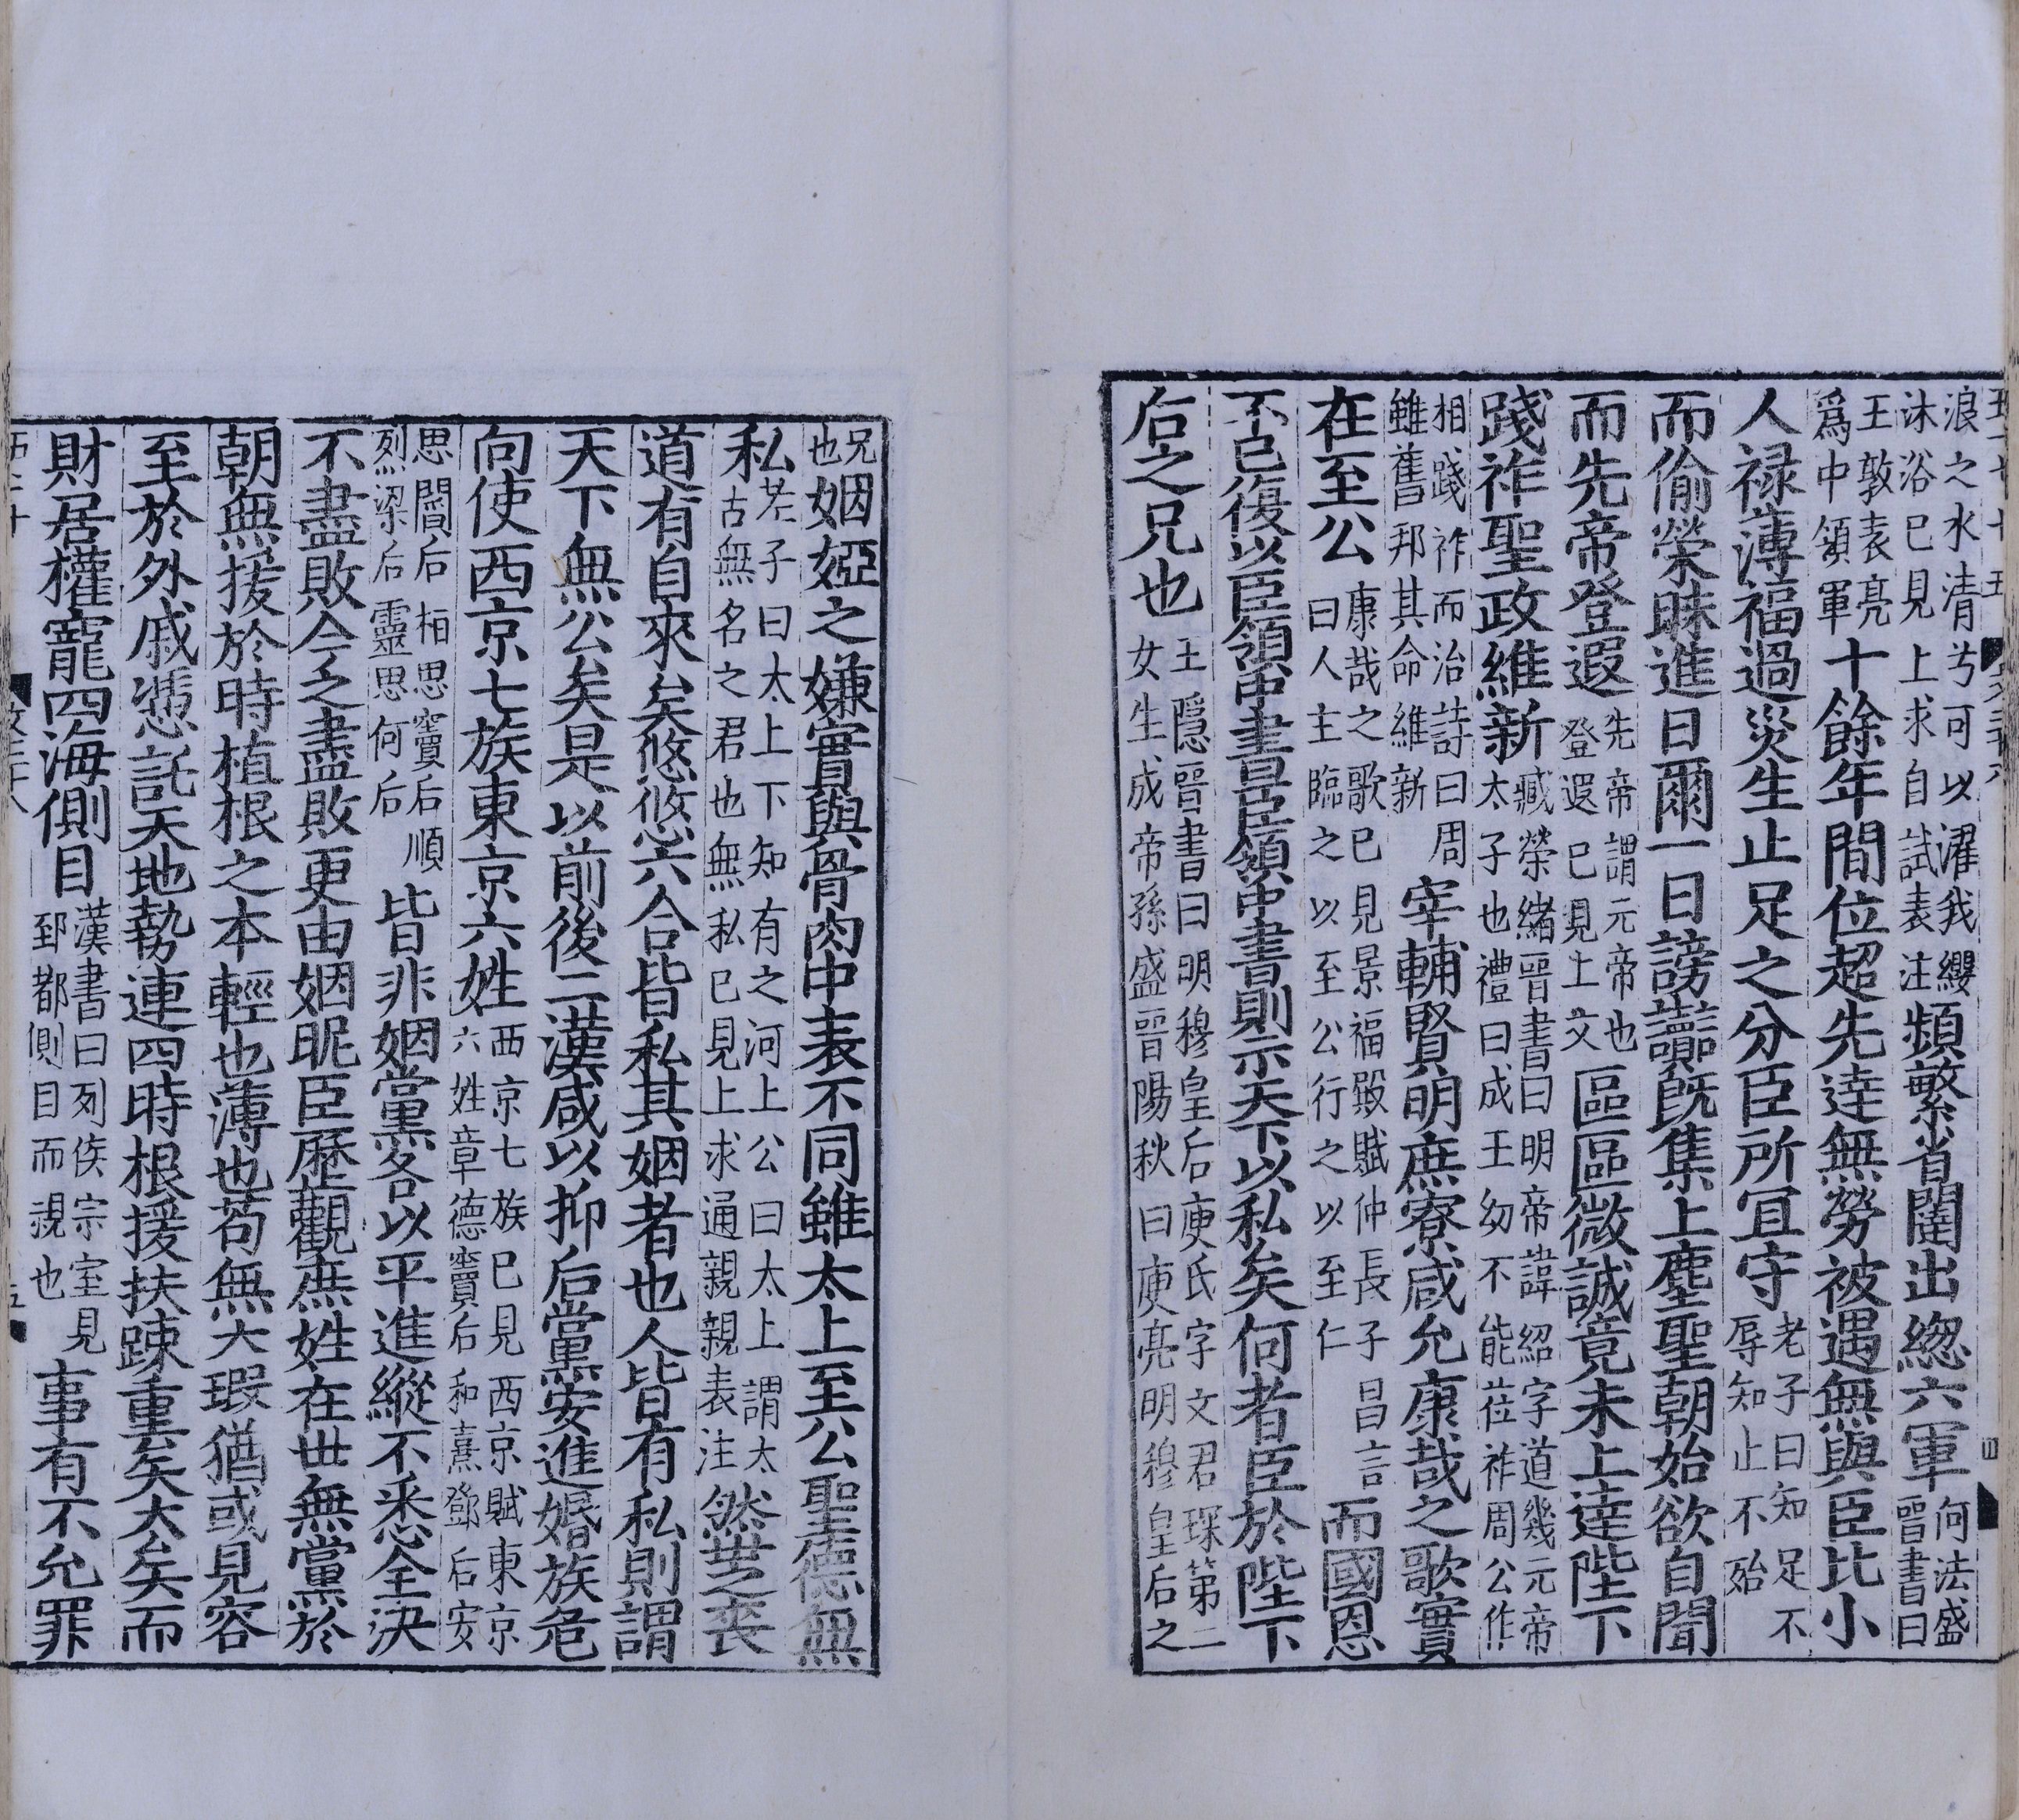 浪之水清兮可以濯我纓
沐浴已見上求自試表注
頻繁省闥出緫六軍
何法盛
晉書曰
王敦表亮
爲中領軍
十餘年間位超先達無勞被遇無與臣比小
人禄薄福過災生止足之分臣所宜守
老子曰知足不
辱知止不殆
而偷榮昧進日爾一日謗讟旣集上塵聖朝始欲自聞
而先帝登遐
先帝謂元帝也
登遐已見上文
區區微誠竟未上達陛下
踐祚聖政維新
臧榮緒晉書曰明帝諱紹字道幾元帝
太子也禮曰成王幼不能莅祚周公作
相踐祚而治詩曰周
雖舊邦其命維新
宰輔賢明庶寮咸允康哉之歌實
在至公
康哉之歌已見景福殿賦仲長子昌言
曰人主臨之以至公行之以至仁
而國恩
不已復以臣領中書臣領中書則示天下以私矣何者臣於陛下
后之兄也
王隱晉書曰明穆皇后庾氏字文君琛第二
女生成帝孫盛晉陽秋曰庾亮明穆皇后之
兄
也
姻婭之嫌實與骨肉中表不同雖太上至公聖德無
私
老子曰太上下知有之河上公曰太上謂太
古無名之君也無私已見上求通親親表注
然世之喪
道有自來矣悠悠六合皆私其姻者也人皆有私則謂
天下無公矣是以前後二漢咸以抑后黨安進婚族危
向使西京七族東京六姓
西京七族已見西京賦東京
六姓章德竇后和熹鄧后安
思閻后桓思竇后順
烈梁后靈思何后
皆非姻黨各以平進縱不悉全决
不盡敗今之盡敗更由姻昵臣歷觀庶姓在世無黨於
朝無援於時植根之本輕也薄也苟無大瑕猶或見容
至於外戚憑託天地勢連四時根援扶踈重矣大矣而
財居權寵四海側目
漢書曰列侯宗室見
郅都側目而視也
事有不允罪